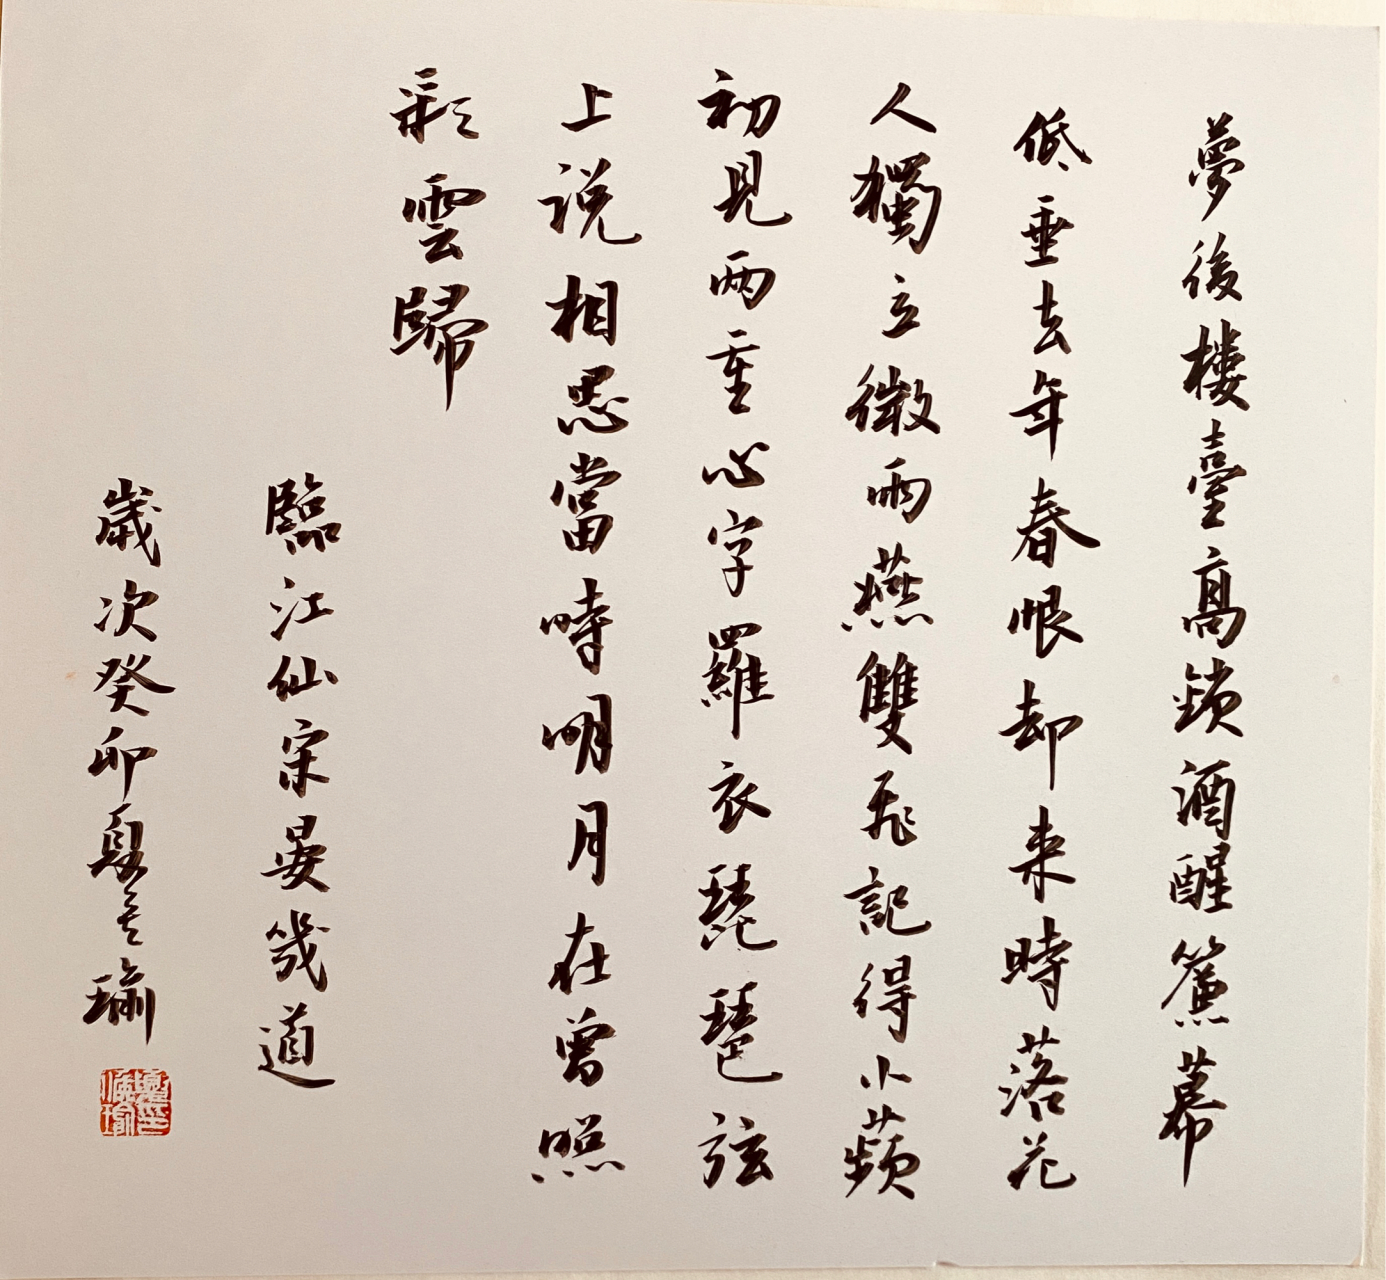 夢後樓臺高鎖酒醒簾幕
低垂去年春恨却来時落花
人獨立微雨燕雙飛記得小蘋
初見两重心字羅衣琵琶弦
上说相思當時明月在曾照
彩雲歸
臨江仙宋晏幾道
歲次癸卯夏 瑜